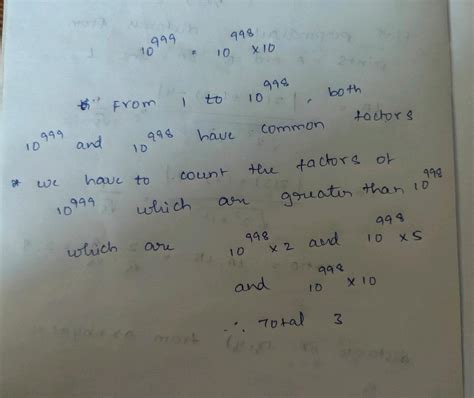 10^999 = 10^998 × 10
From 1 to 10^998, both
10^999 and 10^998 have common factors
* we have to count the factors of
10^999 which are greater than 10^998
which are 10^998 × 2 and 10^998 × 5
and 10^998 × 10
∴ Total 3